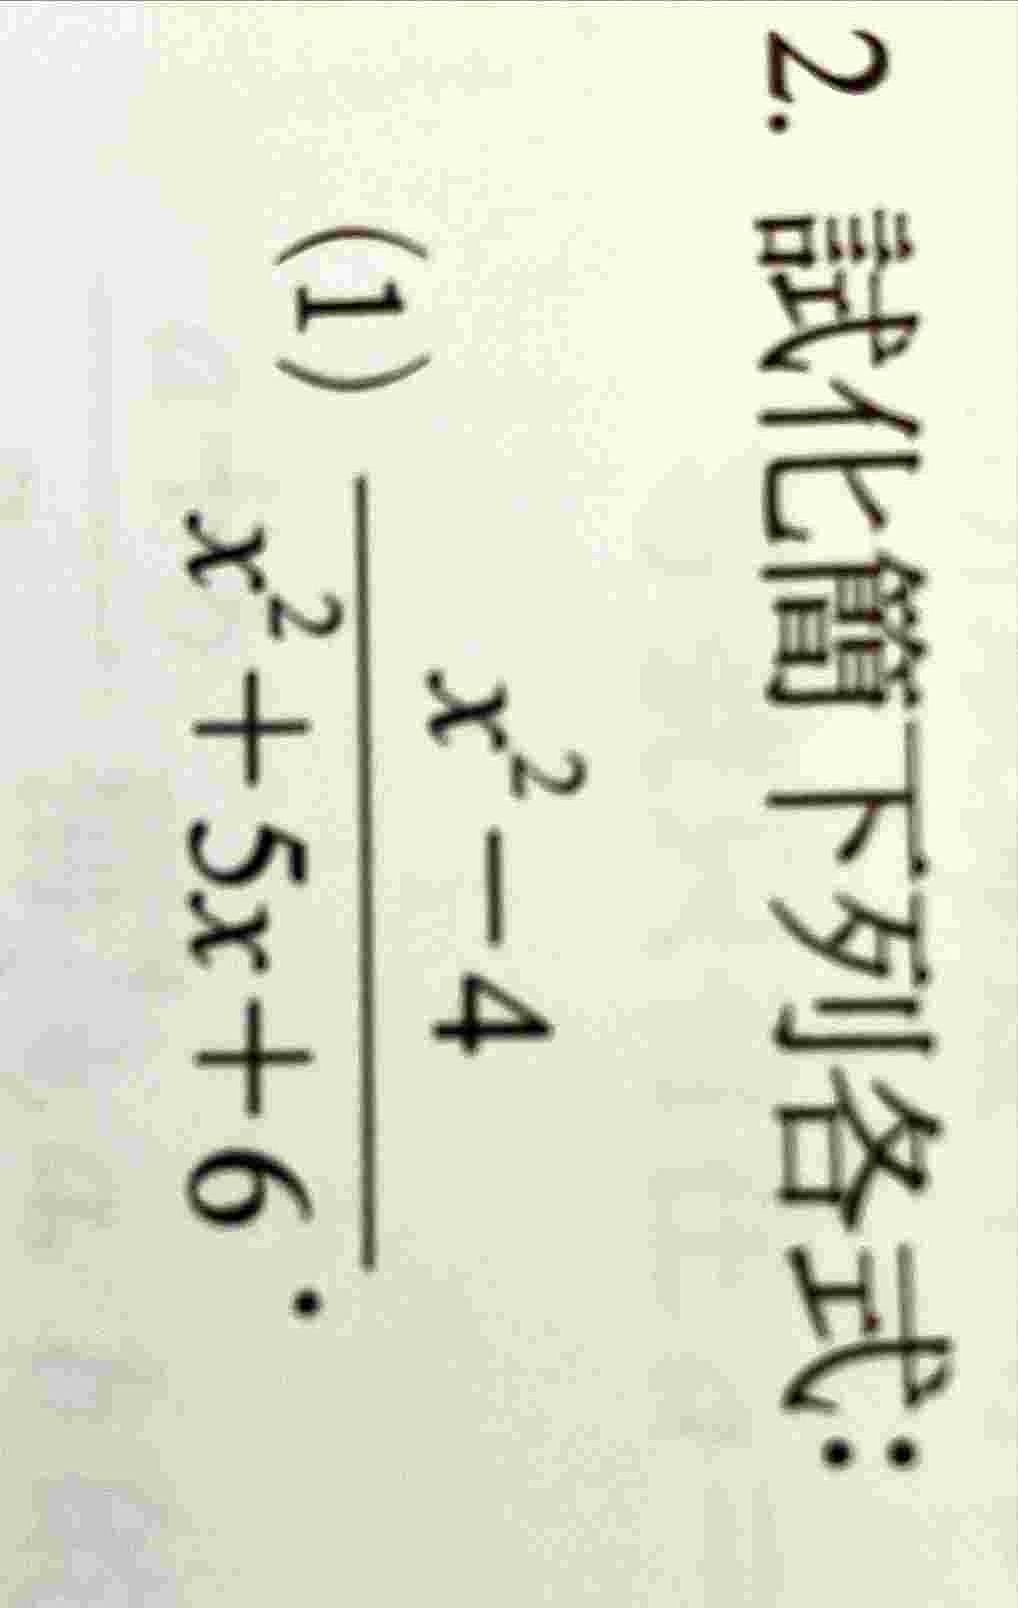 2. 試化簡下列各式：
(1) \frac{x^2-4}{x^2+5x+6}．